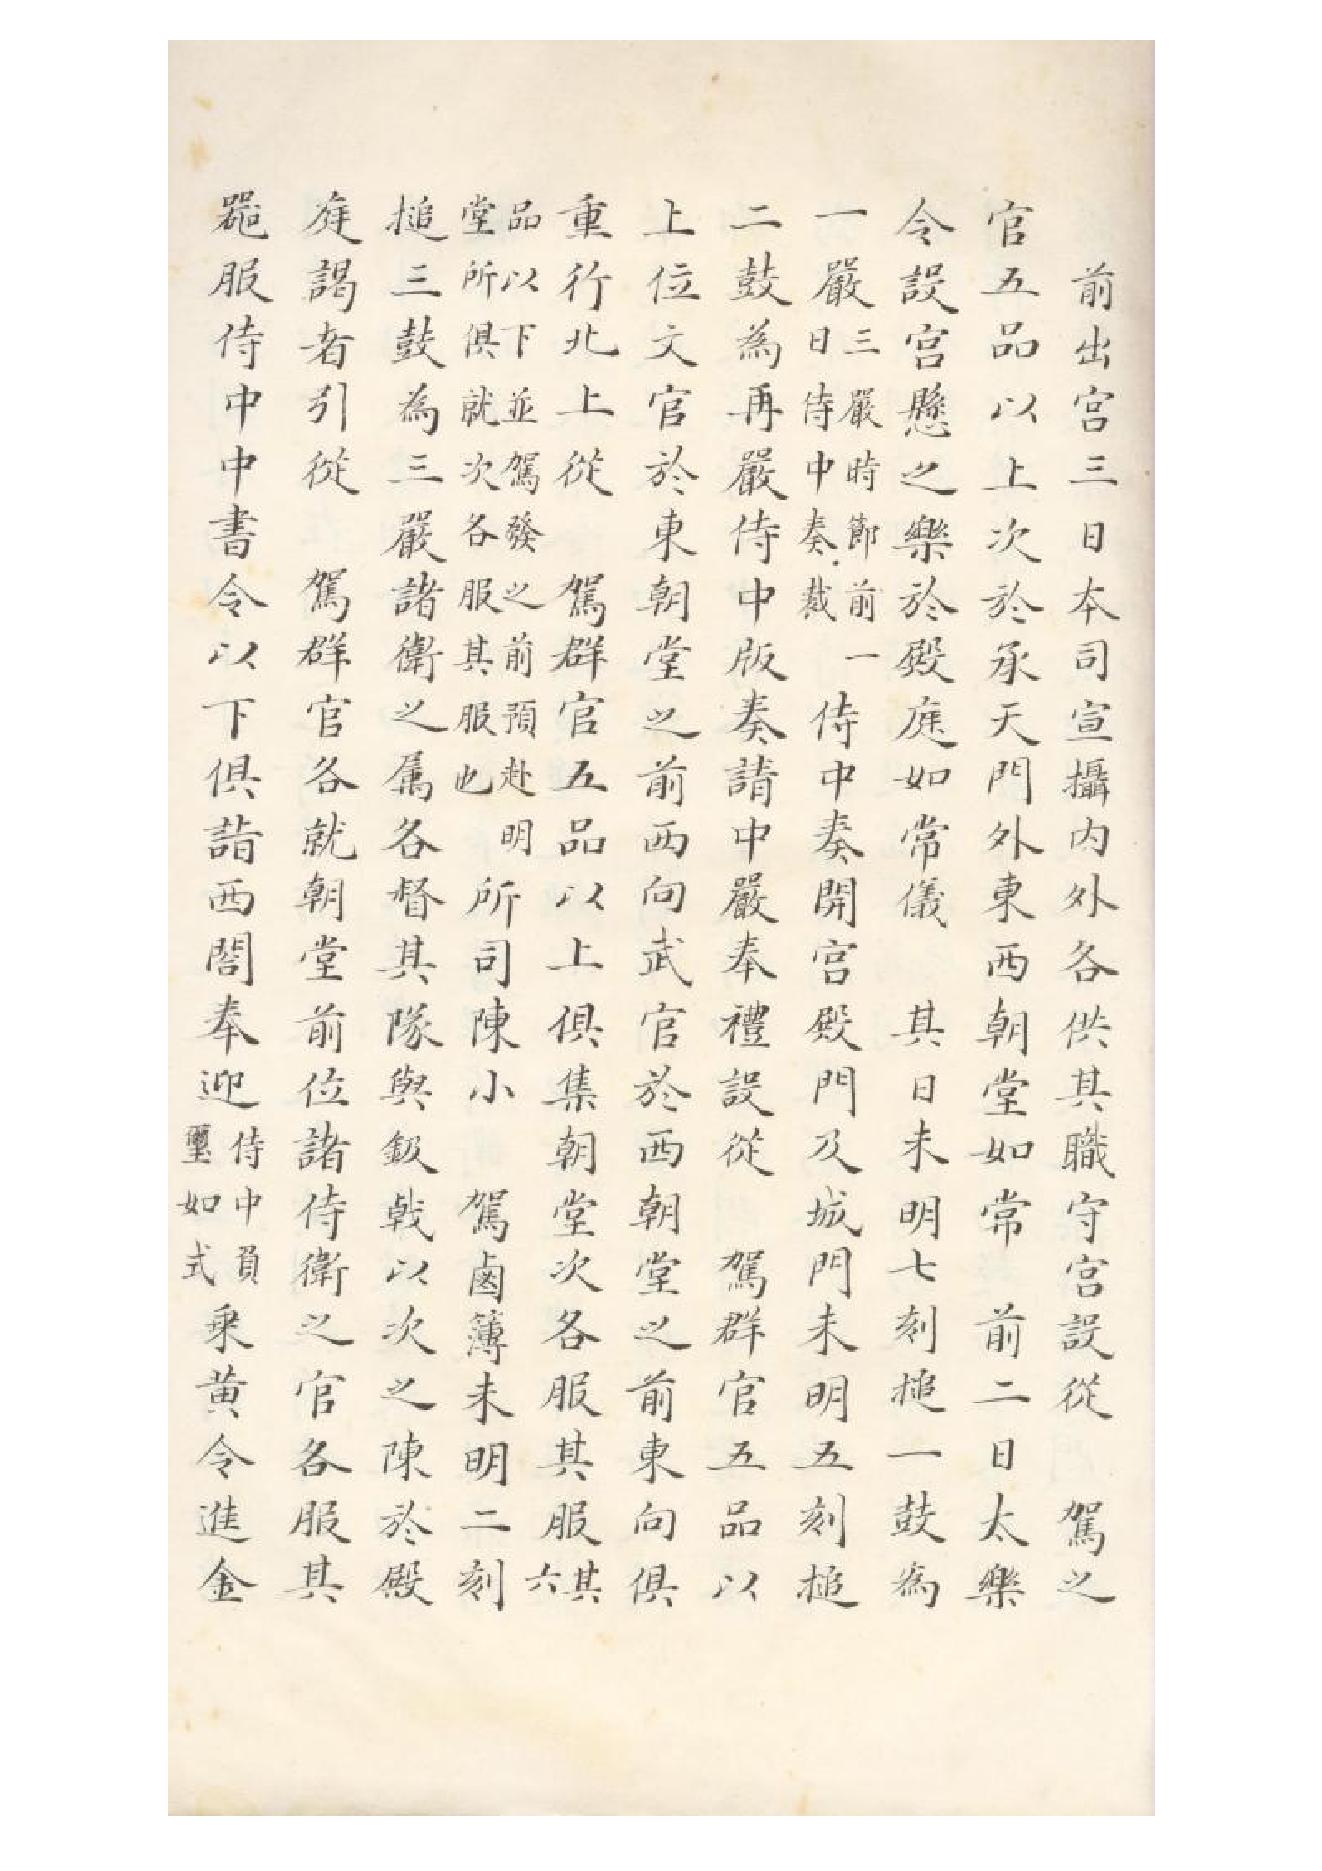 前出宮三日本司宣攝内外各供其職守宮設從　駕之
官五品以上次於承天門外東西朝堂如常　前二日太樂
令設宮懸之樂於殿庭如常儀　其日未明七刻搥一鼓為
一嚴三嚴時節前一日侍中奏裁侍中奏開宮殿門及城門未明五刻搥
二鼓為再嚴侍中版奏請中嚴奉禮設從　駕群官五品以
上位文官於東朝堂之前西向武官於西朝堂之前東向俱
重行北上從　駕群官五品以上俱集朝堂次各服其服其六
品以下並駕發之前預赴明堂所俱就次各服其服也所司陳小　駕鹵簿未明二刻
搥三鼓為三嚴諸衛之属各督其隊與鈒戟以次之陳於殿
庭謁者引從　駕群官各就朝堂前位諸侍衛之官各服其
器服侍中中書令以下俱詣西閤奉迎侍中負璽如式乘黄令進金